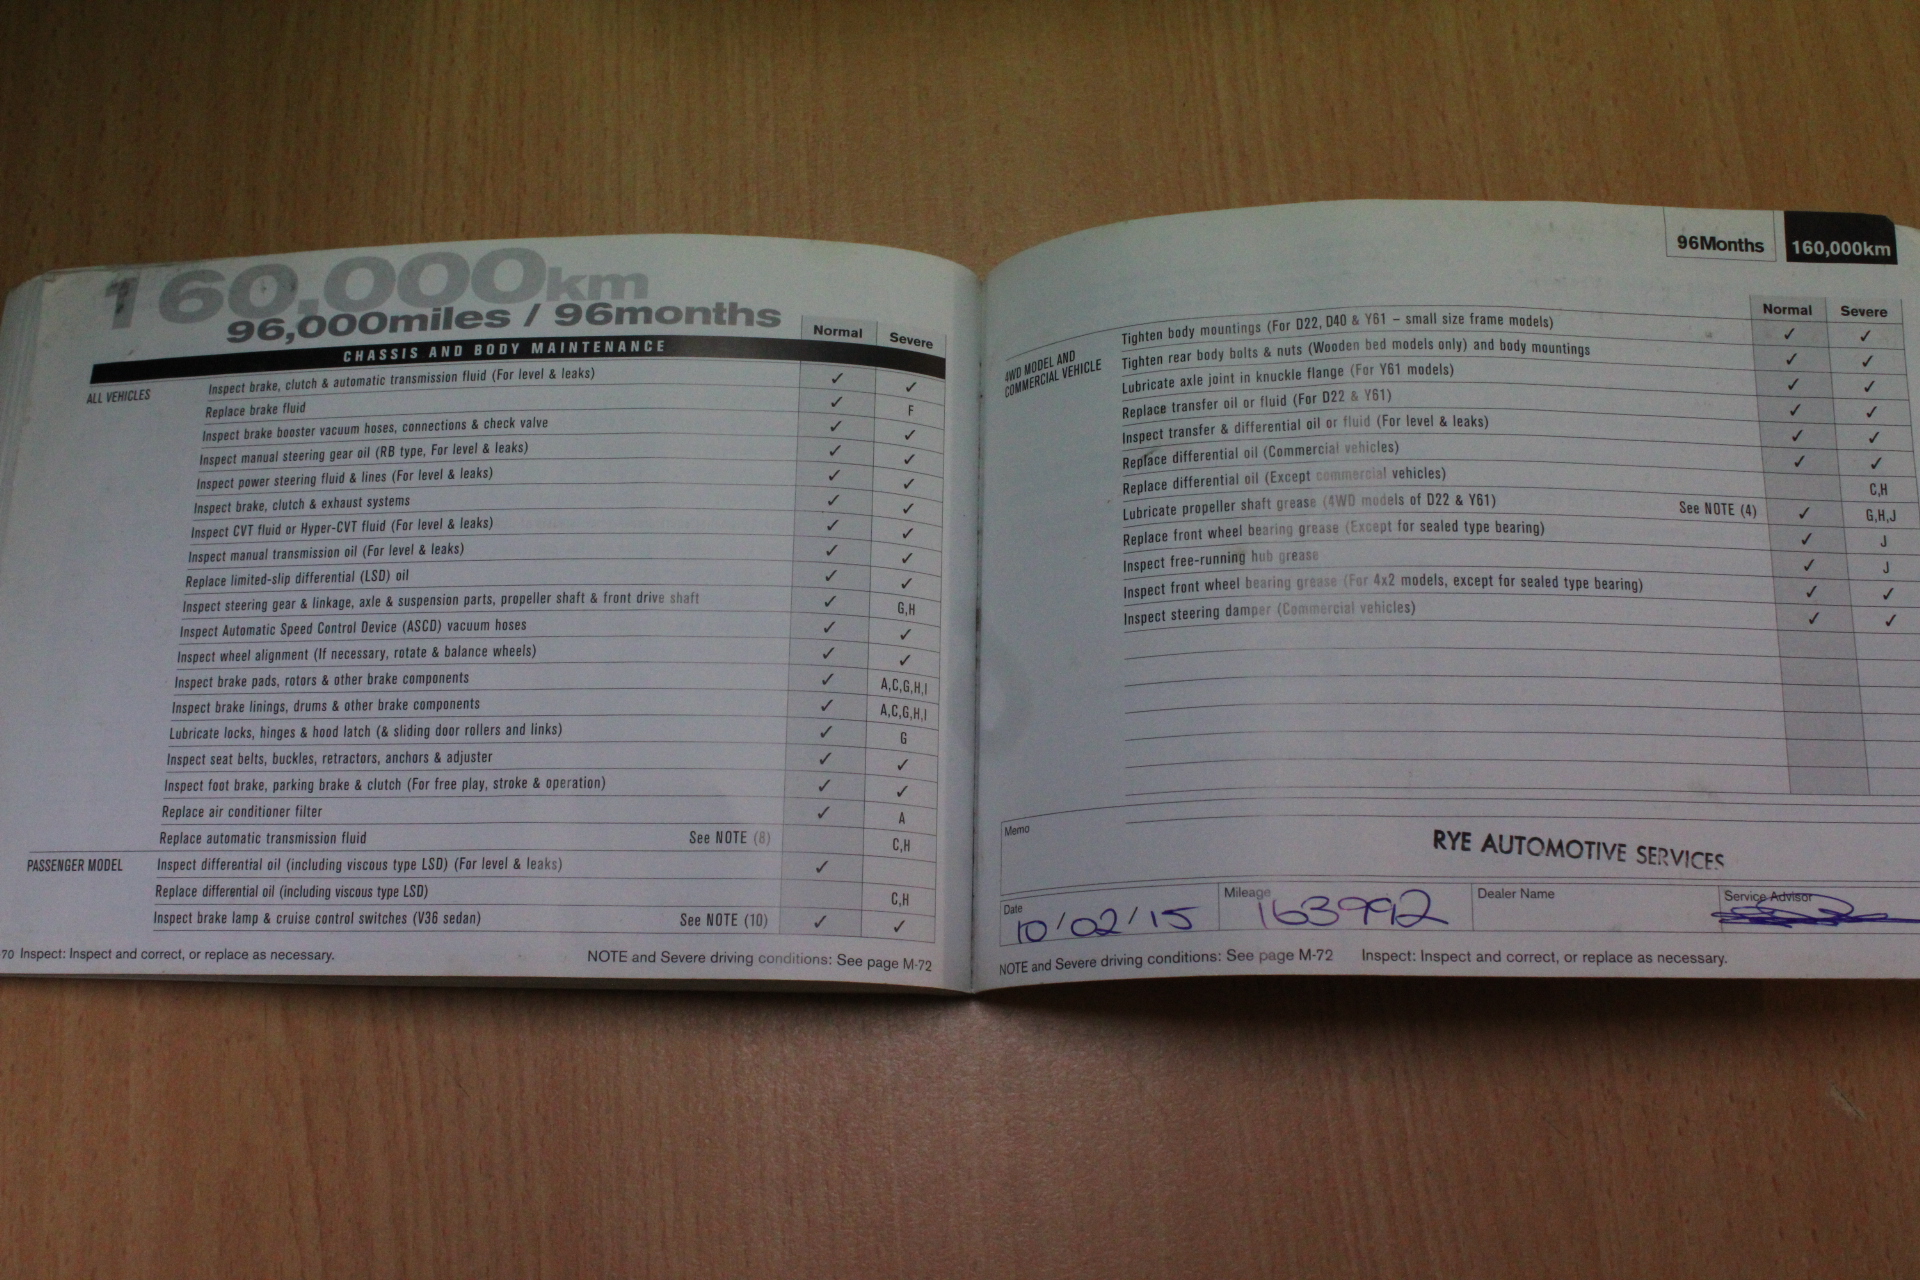 160,000km
96,000miles / 96months
Normal Severe
CHASSIS AND BODY MAINTENANCE
ALL VEHICLES Inspect brake, clutch & automatic transmission fluid (For level & leaks) ✓ ✓
Replace brake fluid ✓ F
Inspect brake booster vacuum hoses, connections & check valve ✓ ✓
Inspect manual steering gear oil (RB type, For level & leaks) ✓ ✓
Inspect power steering fluid & lines (For level & leaks) ✓ ✓
Inspect brake, clutch & exhaust systems ✓ ✓
Inspect CVT fluid or Hyper-CVT fluid (For level & leaks) ✓ ✓
Inspect manual transmission oil (For level & leaks) ✓ ✓
Replace limited-slip differential (LSD) oil ✓ ✓
Inspect steering gear & linkage, axle & suspension parts, propeller shaft & front drive shaft ✓ G,H
Inspect Automatic Speed Control Device (ASCD) vacuum hoses ✓ ✓
Inspect wheel alignment (If necessary, rotate & balance wheels) ✓ ✓
Inspect brake pads, rotors & other brake components ✓ A,C,G,H,I
Inspect brake linings, drums & other brake components ✓ A,C,G,H,I
Lubricate locks, hinges & hood latch (& sliding door rollers and links) ✓ G
Inspect seat belts, buckles, retractors, anchors & adjuster ✓ ✓
Inspect foot brake, parking brake & clutch (For free play, stroke & operation) ✓ ✓
Replace air conditioner filter ✓ A
Replace automatic transmission fluid See NOTE (8) C,H
PASSENGER MODEL Inspect differential oil (including viscous type LSD) (For level & leaks) ✓
Replace differential oil (including viscous type LSD) C,H
Inspect brake lamp & cruise control switches (V36 sedan) See NOTE (10) ✓ ✓
70 Inspect: Inspect and correct, or replace as necessary. NOTE and Severe driving conditions: See page M-72
96Months 160,000km
Normal Severe
4WD MODEL AND
COMMERCIAL VEHICLE
Tighten body mountings (For D22, D40 & Y61 – small size frame models) ✓ ✓
Tighten rear body bolts & nuts (Wooden bed models only) and body mountings ✓ ✓
Lubricate axle joint in knuckle flange (For Y61 models) ✓ ✓
Replace transfer oil or fluid (For D22 & Y61) ✓ ✓
Inspect transfer & differential oil or fluid (For level & leaks) ✓ ✓
Replace differential oil (Commercial vehicles) ✓ ✓
Replace differential oil (Except commercial vehicles) C,H
Lubricate propeller shaft grease (4WD models of D22 & Y61) See NOTE (4) ✓ G,H,J
Replace front wheel bearing grease (Except for sealed type bearing) ✓ J
Inspect free-running hub grease ✓ J
Inspect front wheel bearing grease (For 4x2 models, except for sealed type bearing) ✓ ✓
Inspect steering damper (Commercial vehicles) ✓ ✓
Memo
RYE AUTOMOTIVE SERVICES
Date 10/02/15 Mileage 163992 Dealer Name Service Advisor
NOTE and Severe driving conditions: See page M-72 Inspect: Inspect and correct, or replace as necessary.